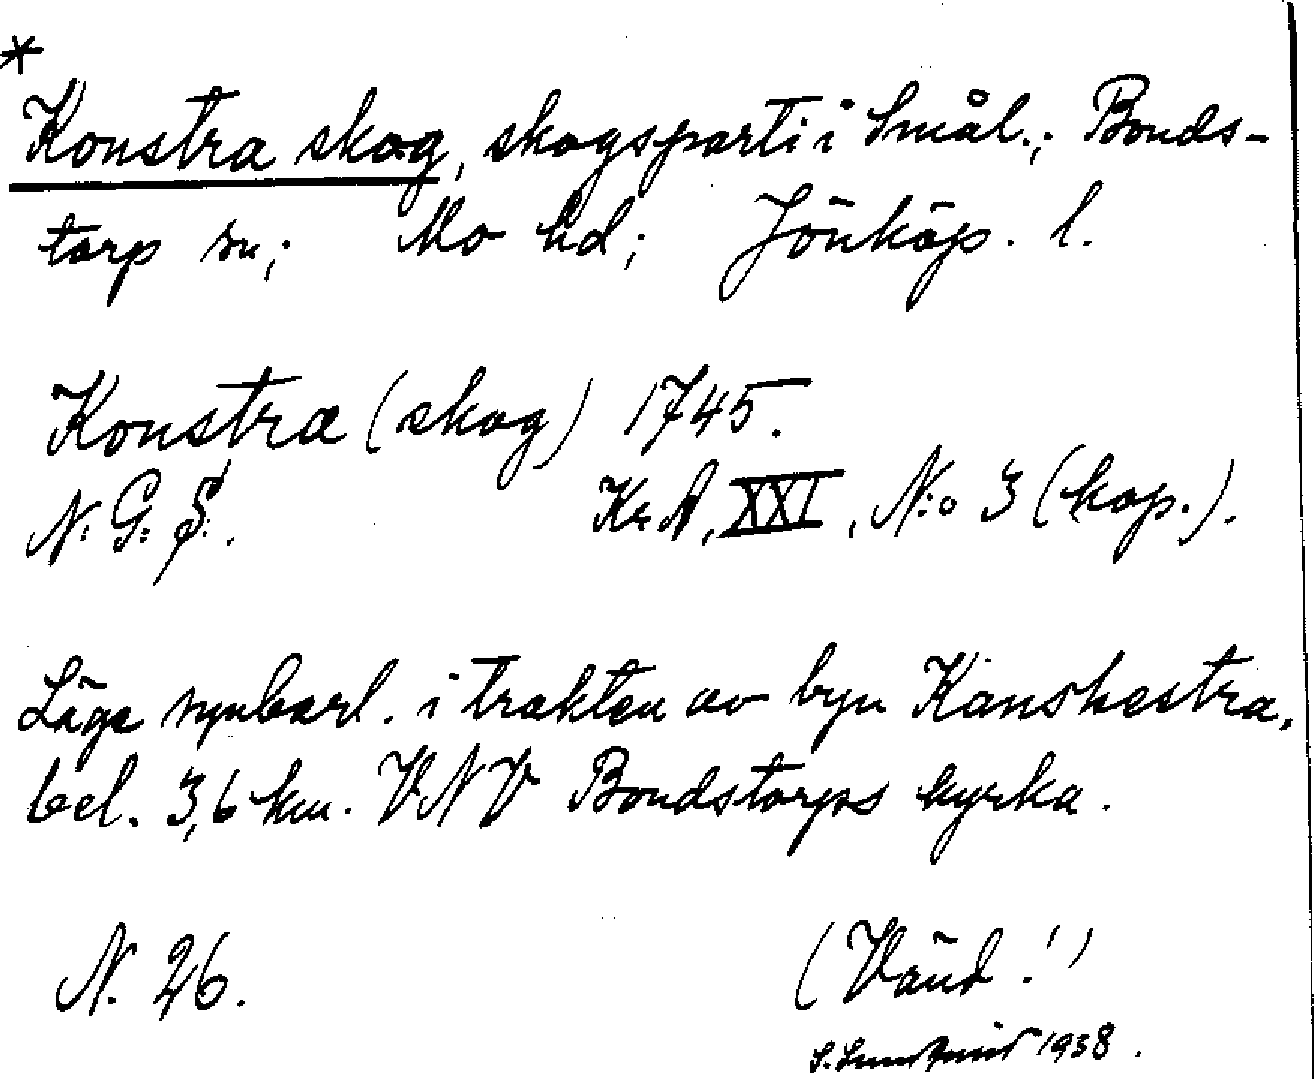 *
Konstra skog, skogsparti i Smål.; Bonds-
torp sn; Mo hd; Jönköp. l.
Konstra (skog) 1745.
N. G. S. KrA, XXI, N:o 3 (kop.).
Läge synbarl. i trakten av byn Kanshestra,
bel. 3,6 km. VNV Bondstorps kyrka.
N. 26. (Vänd!)
S. 1938.